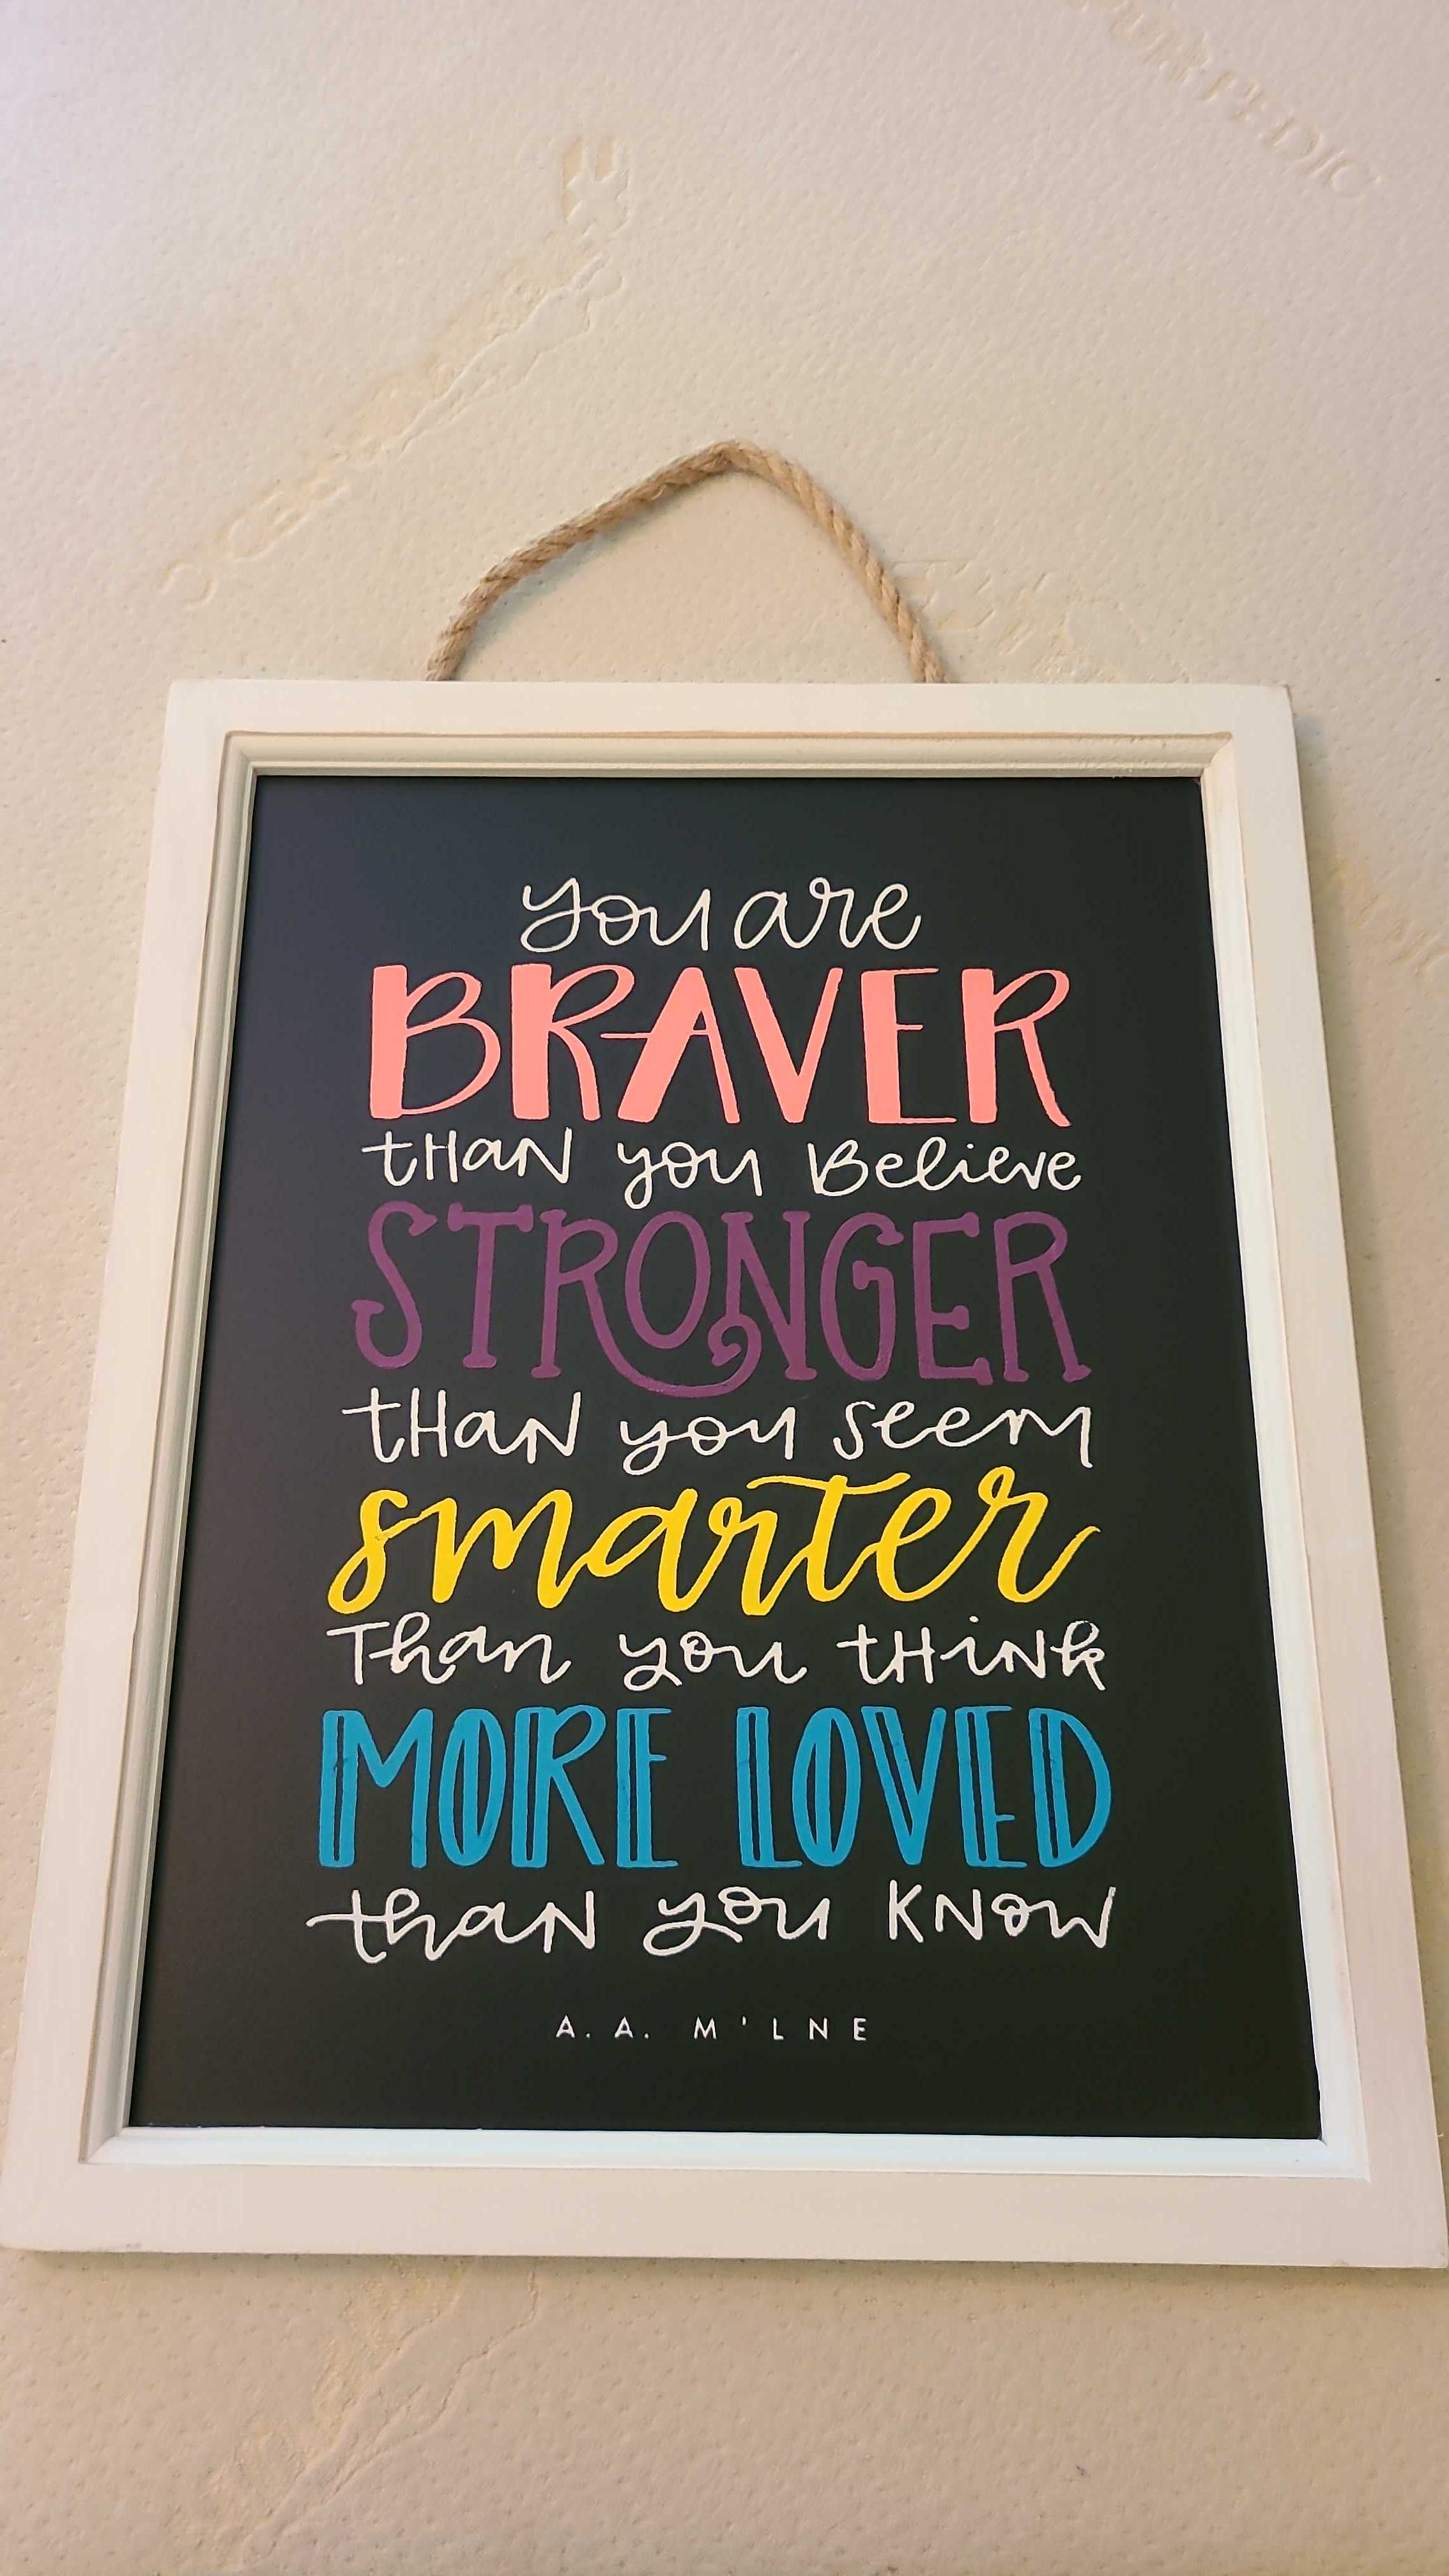 you are
BRAVER
tHaN you Believe
STRONGER
tHaN you seem
smarter
Than you tHiNk
MORE LOVED
thaN you KNow
A. A. M'LNE